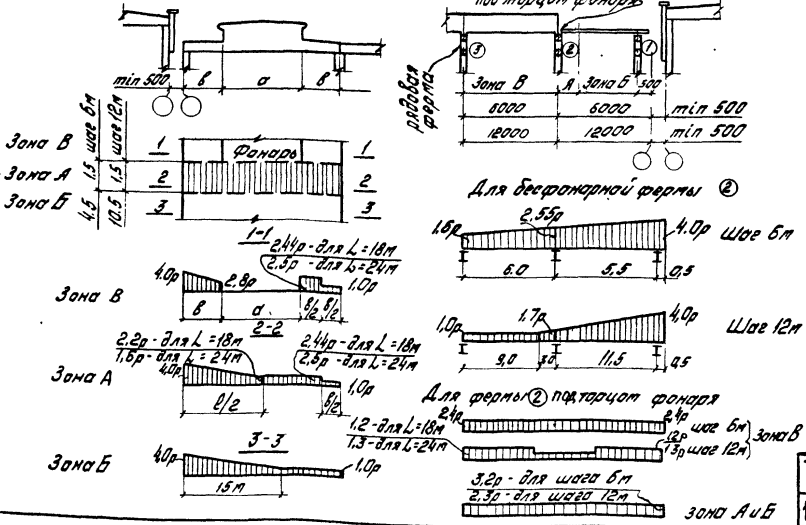 под торцом фонаря
min 500
в
а
в
Зона В
Зона А
Зона Б
1,5 шаг 6м
1,5 шаг 12м
4.5
10.5
Фонарь
1 1
2 2
3 3
1-1
2,44р - для L = 18м
2,5р - для L = 24м
4.0р
2,8р
1,0р
Зона В
в
а
в/2 в/2
2-2
2,2р - для L = 18м
1,6р - для L = 24м
2,44р - для L = 18м
2,5р - для L = 24м
4,0р
1,0р
Зона А
ℓ/2
в/2
3-3
4,0р
1,0р
Зона Б
15м
рядовая ферма
3
2
1
Зона В
А
Зона Б
500
6000
6000
min 500
12000
12000
min 500
Для бесфонарной фермы 2
1,6р
2,55р
4.0р
Шаг 6м
6.0
5,5
0,5
1,0р
1.7р
4,0р
Шаг 12м
9,0
3.0
11,5
0,5
Для фермы 2 под торцом фонаря
2,4р
2,4р
шаг 6м
1,2 - для L = 18м
1,3 - для L = 24м
1,2р
1,3р
шаг 12м
Зона В
3,2р - для шага 6м
2,3р - для шага 12м
зона А и Б